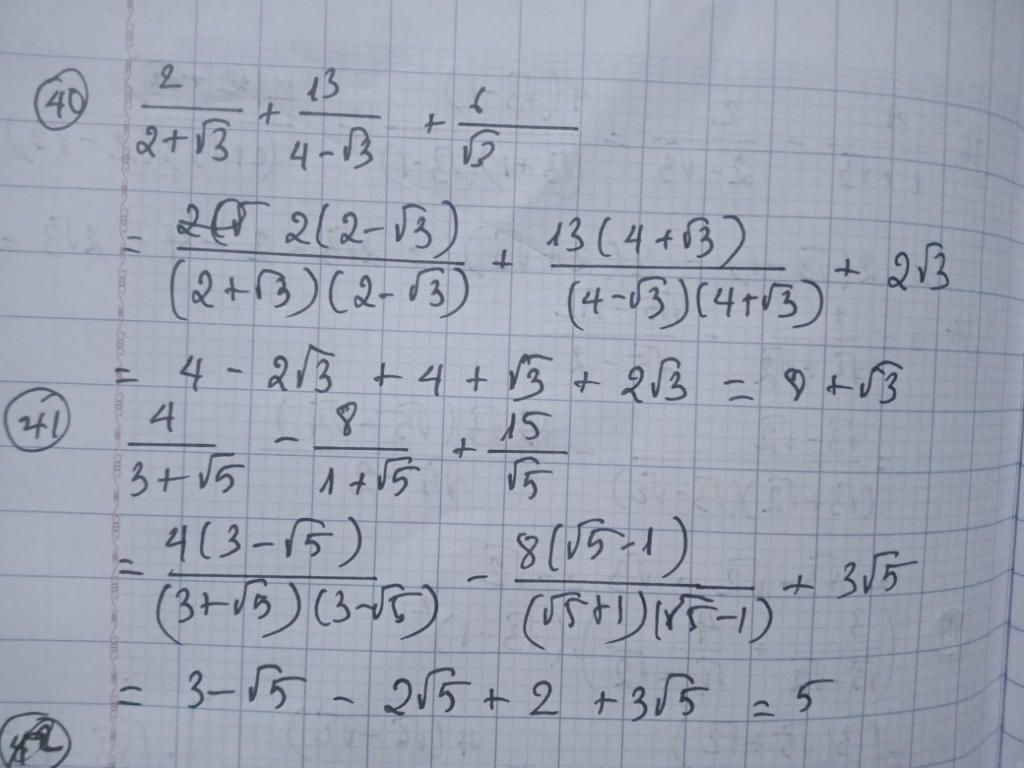 40 2/(2+√3) + 13/(4-√3) + 6/√3
= 2(2-√3)/((2+√3)(2-√3)) + 13(4+√3)/((4-√3)(4+√3)) + 2√3
= 4 - 2√3 + 4 + √3 + 2√3 = 8 + √3
41 4/(3+√5) - 8/(1+√5) + 15/√5
= 4(3-√5)/((3+√5)(3-√5)) - 8(√5-1)/((√5+1)(√5-1)) + 3√5
= 3-√5 - 2√5 + 2 + 3√5 = 5
42